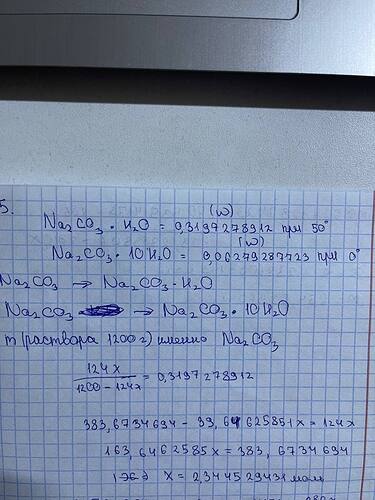 5.
(ω)
Na₂CO₃ · H₂O = 0,3197278912 при 50°
(ω)
Na₂CO₃ · 10 H₂O = 0,06279287723 при 0°
Na₂CO₃ → Na₂CO₃ · H₂O
Na₂CO₃ → Na₂CO₃ · 10H₂O
m (раствора 1200г) именно Na₂CO₃
124x / 1200 - 124x = 0,3197278912
383,6734694 - 39,64625851x = 124x
163,6462585x = 383,6734694
x = 2,344529431 моль